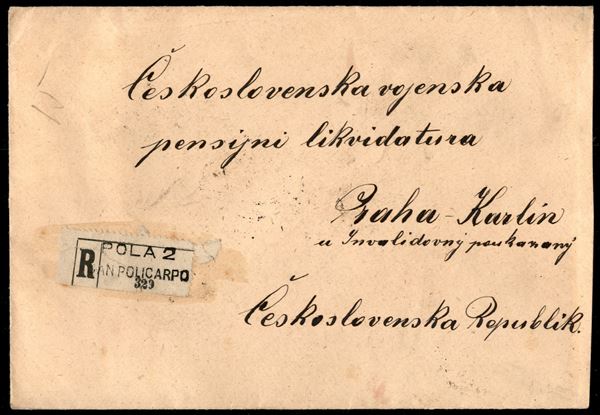 Československa vojenska
pensijni likvidatura
Praha - Karlín
u Invalidovny poukazaný
Československa Republik.
R
POLA 2
AN POLICARPO
329